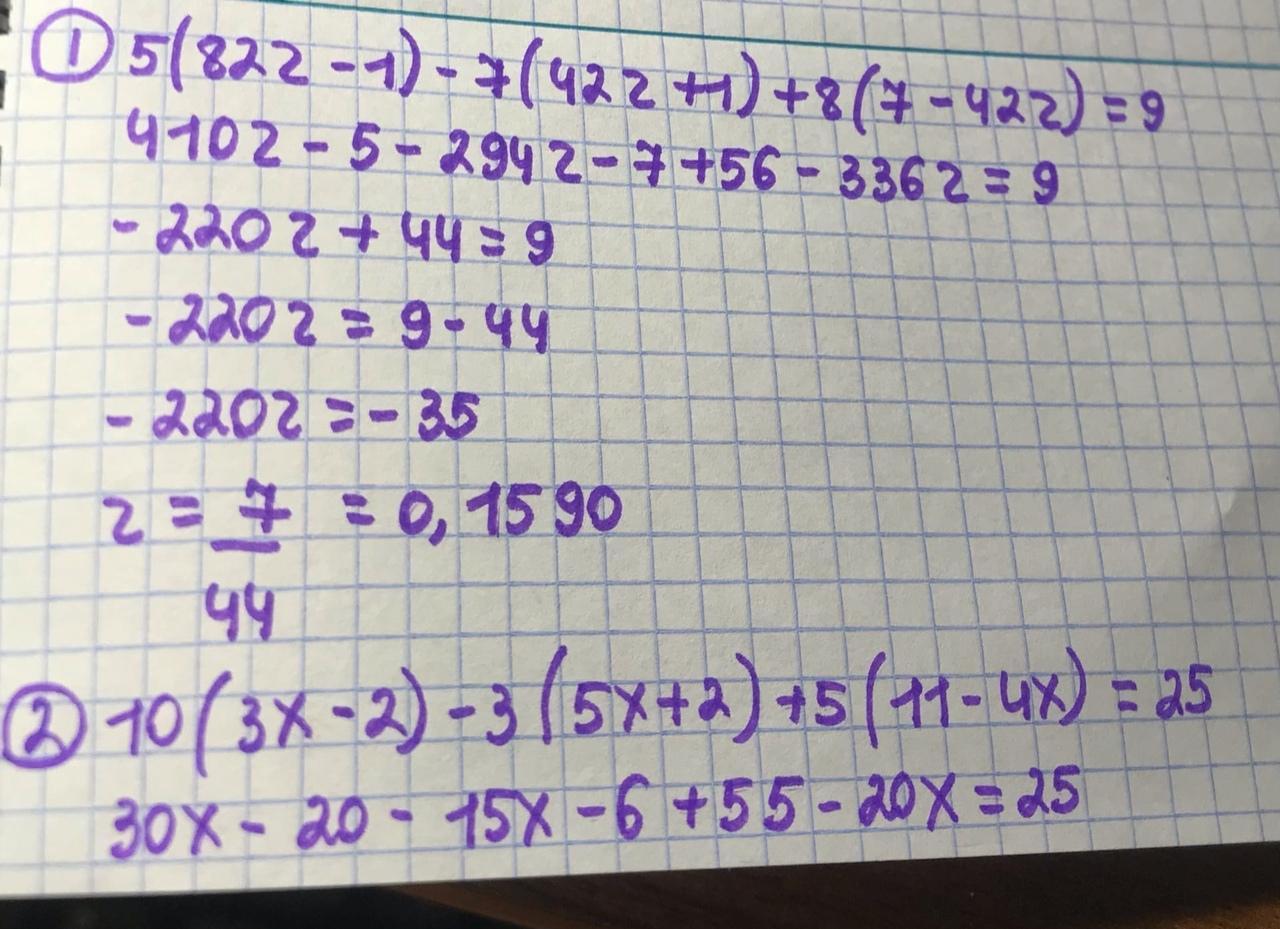 ① 5(82z-1)-7(42z+1)+8(7-42z)=9
410z-5-294z-7+56-336z=9
-220z+44=9
-220z=9-44
-220z=-35
z=7/44=0,1590
② 10(3x-2)-3(5x+2)+5(11-4x)=25
30x-20-15x-6+55-20x=25